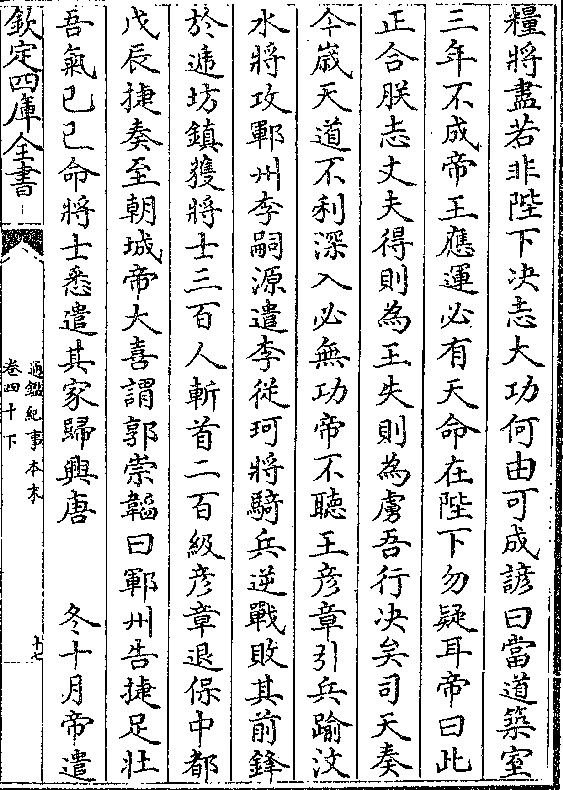 糧將盡若非陛下决志大功何由可成諺曰當道築室
三年不成帝王應運必有天命在陛下勿疑耳帝曰此
正合朕志丈夫得則為王失則為虜吾行决矣司天奏
今歳天道不利深入必無功帝不聽王彦章引兵踰汶
水將攻鄆州李嗣源遣李從珂將騎兵逆戰敗其前鋒
於遞坊鎮獲將士三百人斬首二百級彦章退保中都
戊辰捷奏至朝城帝大喜謂郭崇韜曰鄆州告捷足壯
吾氣己巳命將士悉遣其家歸興唐　冬十月帝遣
欽定四庫全書
通鑑紀事本末
卷四十下
十七